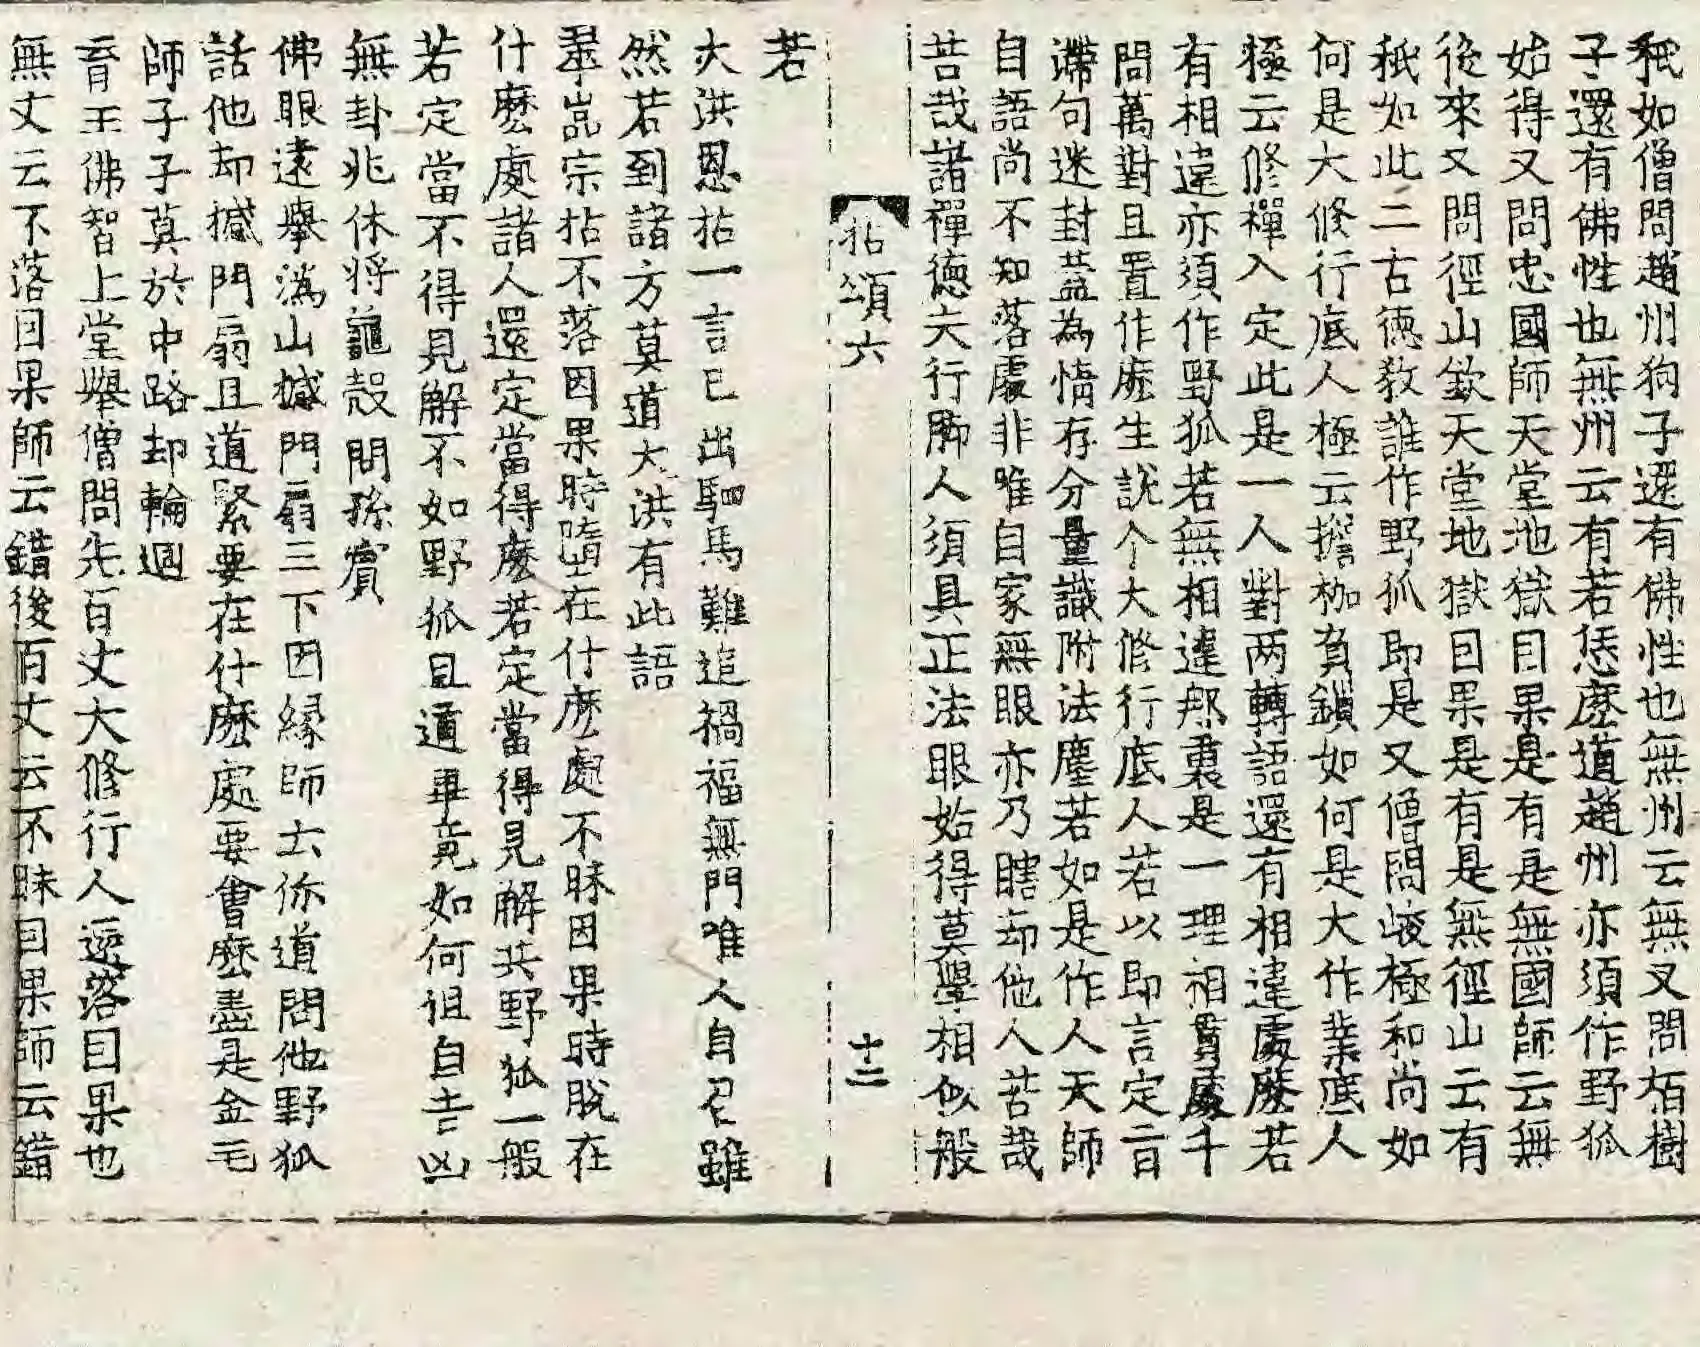 秖如僧問趙州狗子還有佛性也無州云無又問栢樹
子還有佛性也無州云有若恁麽道趙州亦須作野狐
始得又問忠國師天堂地獄因果是有是無國師云無
後來又問徑山欽天堂地獄因果是有是無徑山云有
秖如此二古德教誰作野狐即是又僧問峻極和尚如
何是大修行底人極云擔枷負鎖如何是大作業底人
極云修禪入定此是一人對两轉語還有相違處麽若
有相違亦須作野狐若無相違那裏是一理相貫處千
問萬對且置作麽生說个大修行底人若以即言定旨
滯句迷封盖為情存分量識附法塵若如是作人天師
自語尚不知落處非唯自家無眼亦乃瞎却他人苦哉
苦哉諸禪德大行脚人須具正法眼始得莫學相似般
拈頌六 十二
若
大洪恩拈一言已出駟馬難追禍福無門唯人自召雖
然若到諸方莫道大洪有此語
翠嵓宗拈不落因果時墮在什麽處不昧因果時脫在
什麽處諸人還定當得麽若定當得見解共野狐一般
若定當不得見解不如野狐且道畢竟如何徂自吉凶
無卦兆休將龜殼問孫賓
佛眼遠舉潙山撼門扇三下因緣師云你道問他野狐
話他却撼門扇且道緊要在什麽處要會麽盡是金毛
師子子莫於中路却輪迴
育王佛智上堂舉僧問先百丈大修行人還落因果也
無丈云不落因果師云錯後百丈云不昧因果師云錯